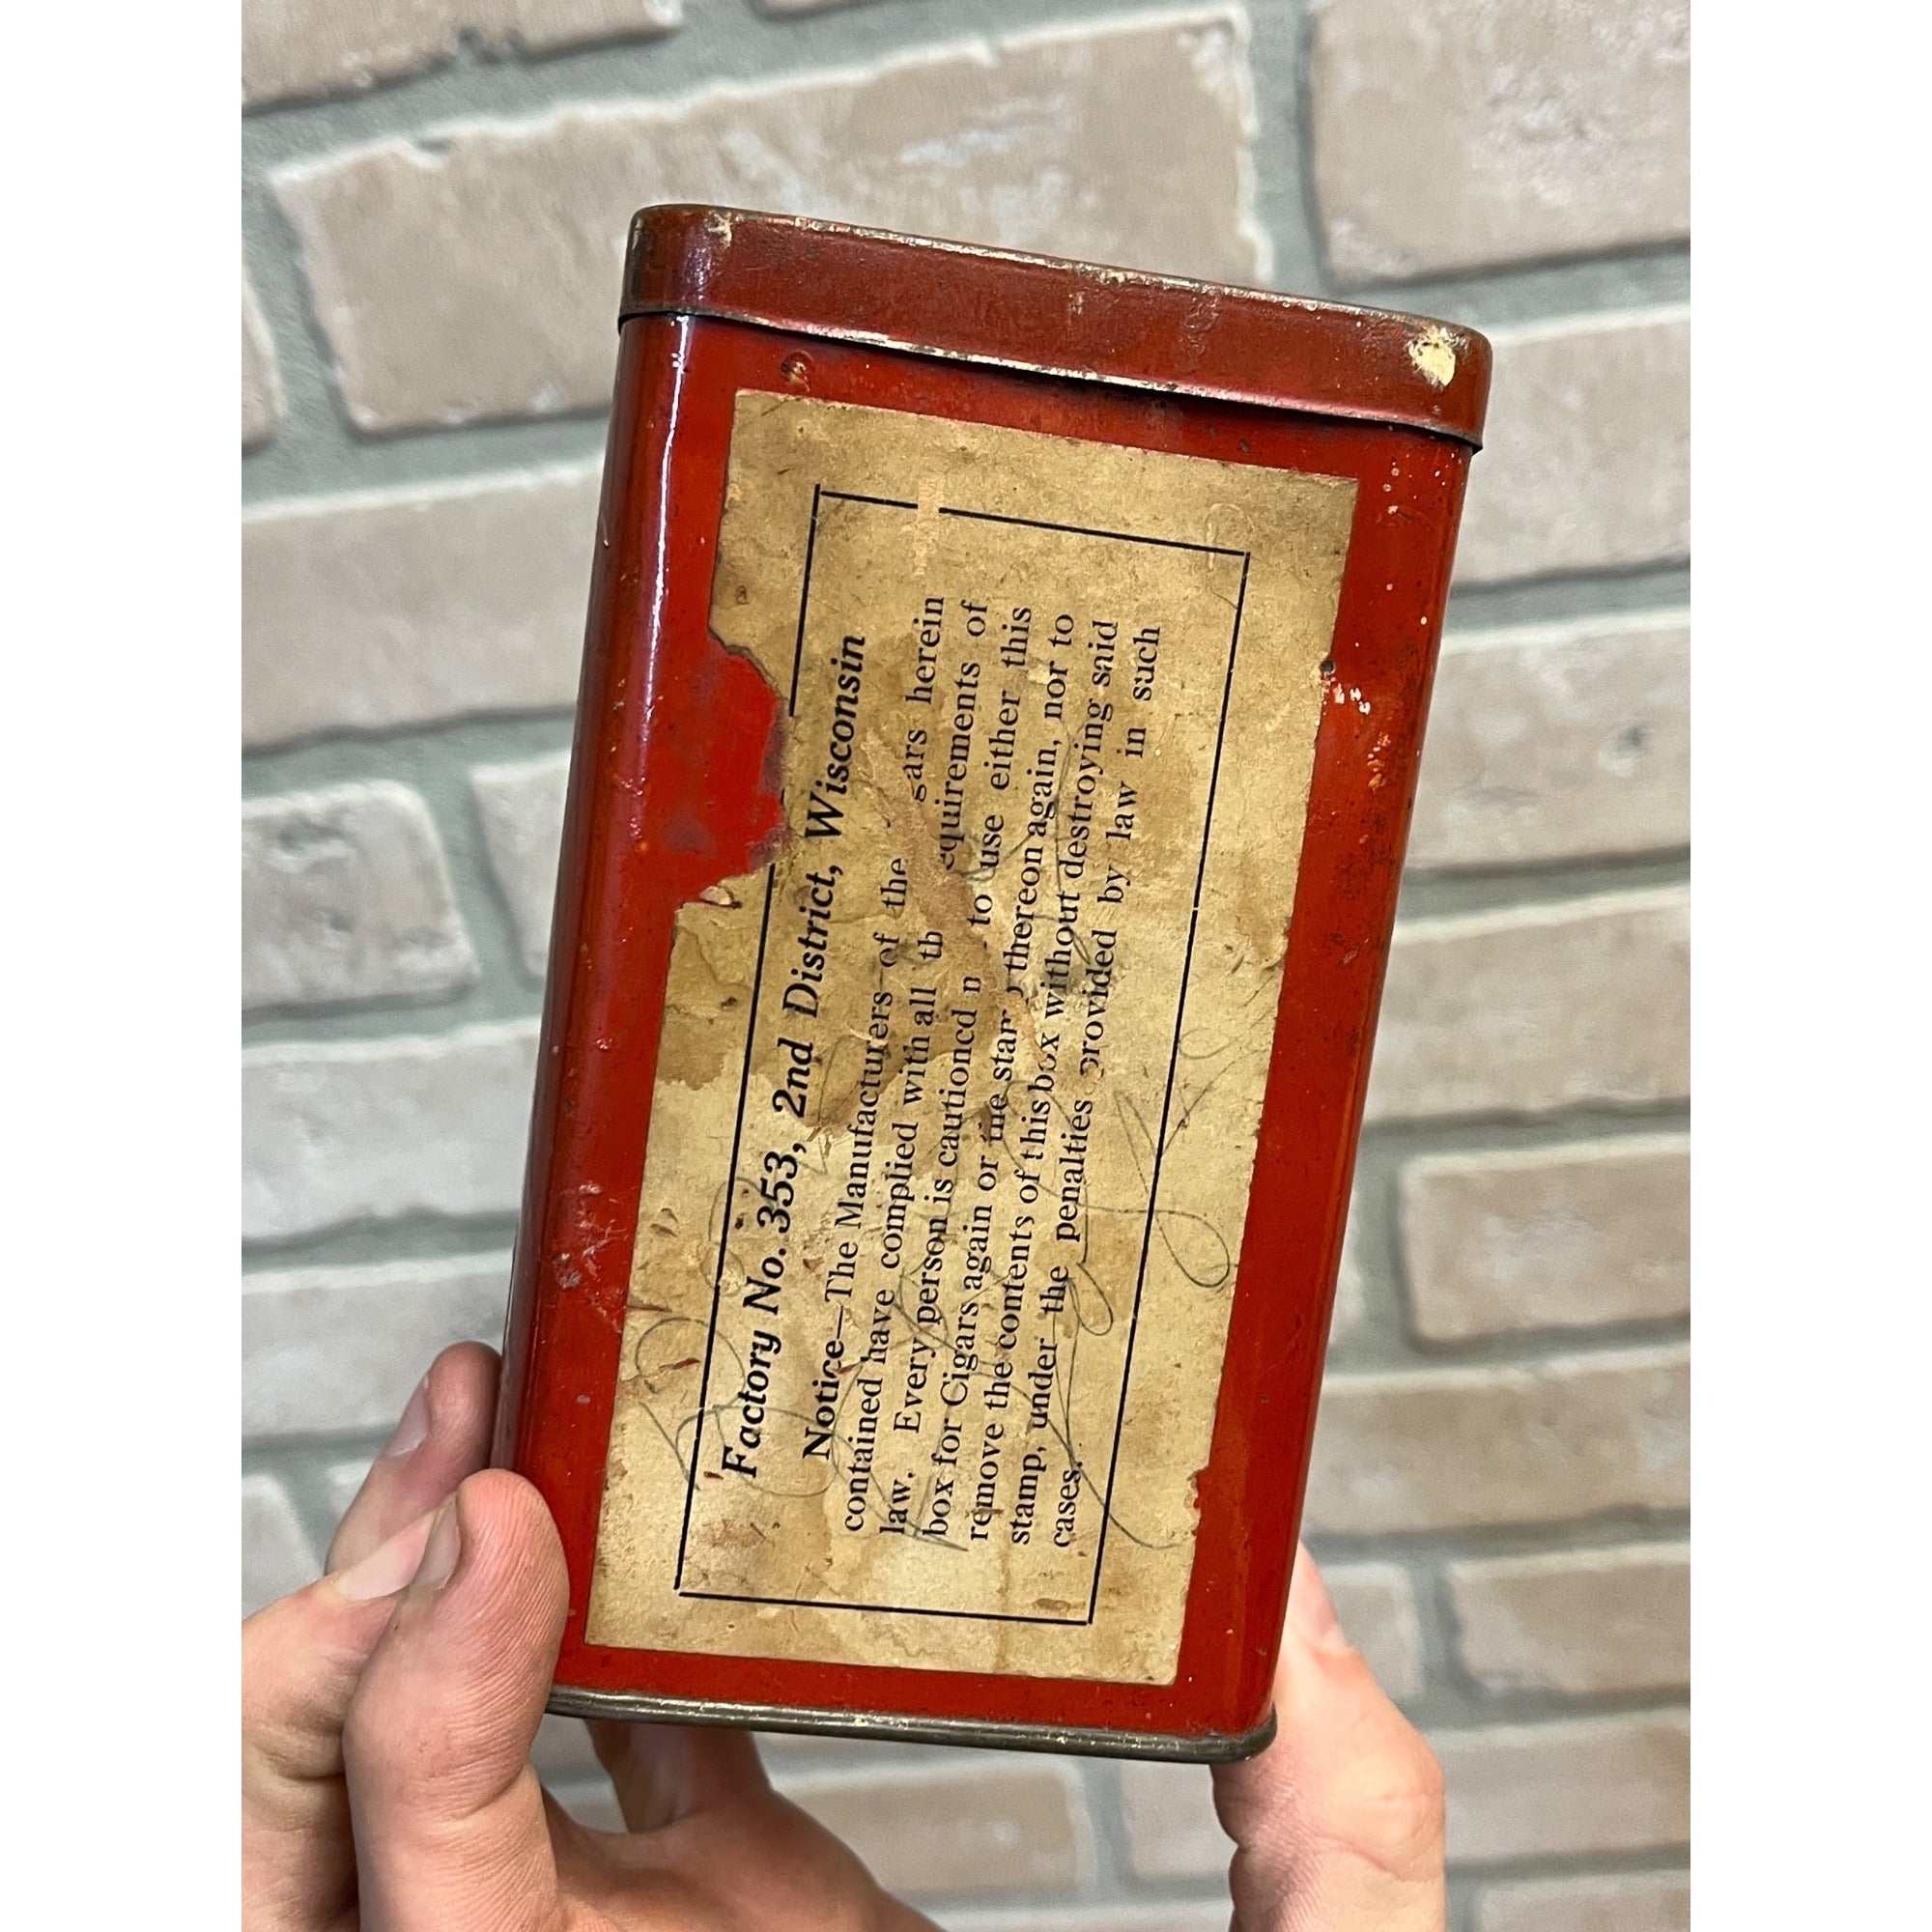 Factory No. 353, 2nd District, Wisconsin
Notice—The Manufacturers of the gars herein
contained have complied with all th equirements of
law. Every person is cautioned n to use either this
box for Cigars again or the stam thereon again, nor to
remove the contents of this box without destroying said
stamp, under the penalties provided by law in such
cases.